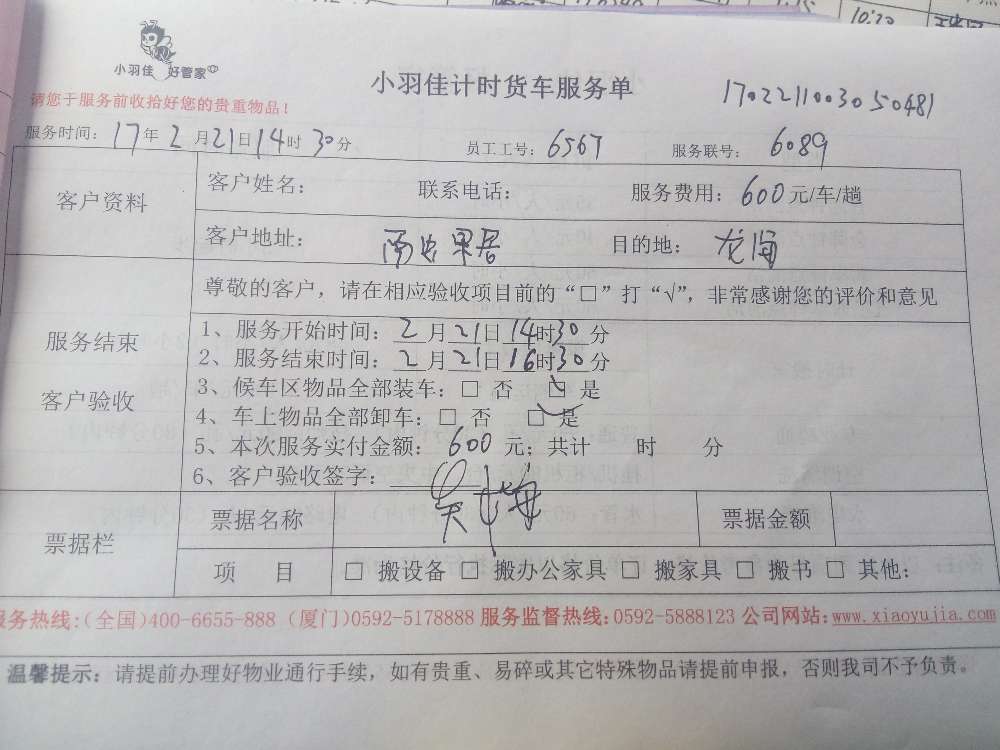 10:20
小羽佳 好管家
小羽佳计时货车服务单
1702211003050481
请您于服务前收拾好您的贵重物品！
服务时间：17年2月21日14时30分 员工工号：6567 服务联号：6089
客户资料
客户姓名： 联系电话： 服务费用：600元/车/趟
客户地址： 目的地：龙海
服务结束
客户验收
尊敬的客户，请在相应验收项目前的“□”打“√”，非常感谢您的评价和意见
1、服务开始时间：2月21日14时30分
2、服务结束时间：2月21日16时30分
3、候车区物品全部装车：□ 否 ☑ 是
4、车上物品全部卸车：□ 否 ☑ 是
5、本次服务实付金额：600元；共计 时 分
6、客户验收签字：
票据栏
票据名称 票据金额
项 目 □ 搬设备 □ 搬办公家具 □ 搬家具 □ 搬书 □ 其他：
服务热线：(全国)400-6655-888 (厦门)0592-5178888 服务监督热线：0592-5888123 公司网站：www.xiaoyujia.com
温馨提示：请提前办理好物业通行手续，如有贵重、易碎或其它特殊物品请提前申报，否则我司不予负责。